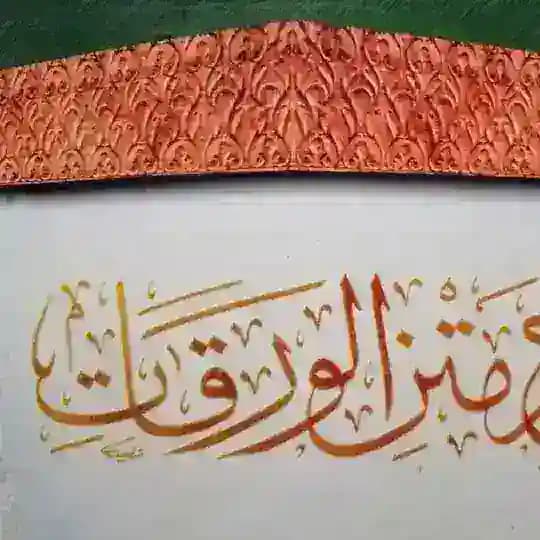 متن الورقات